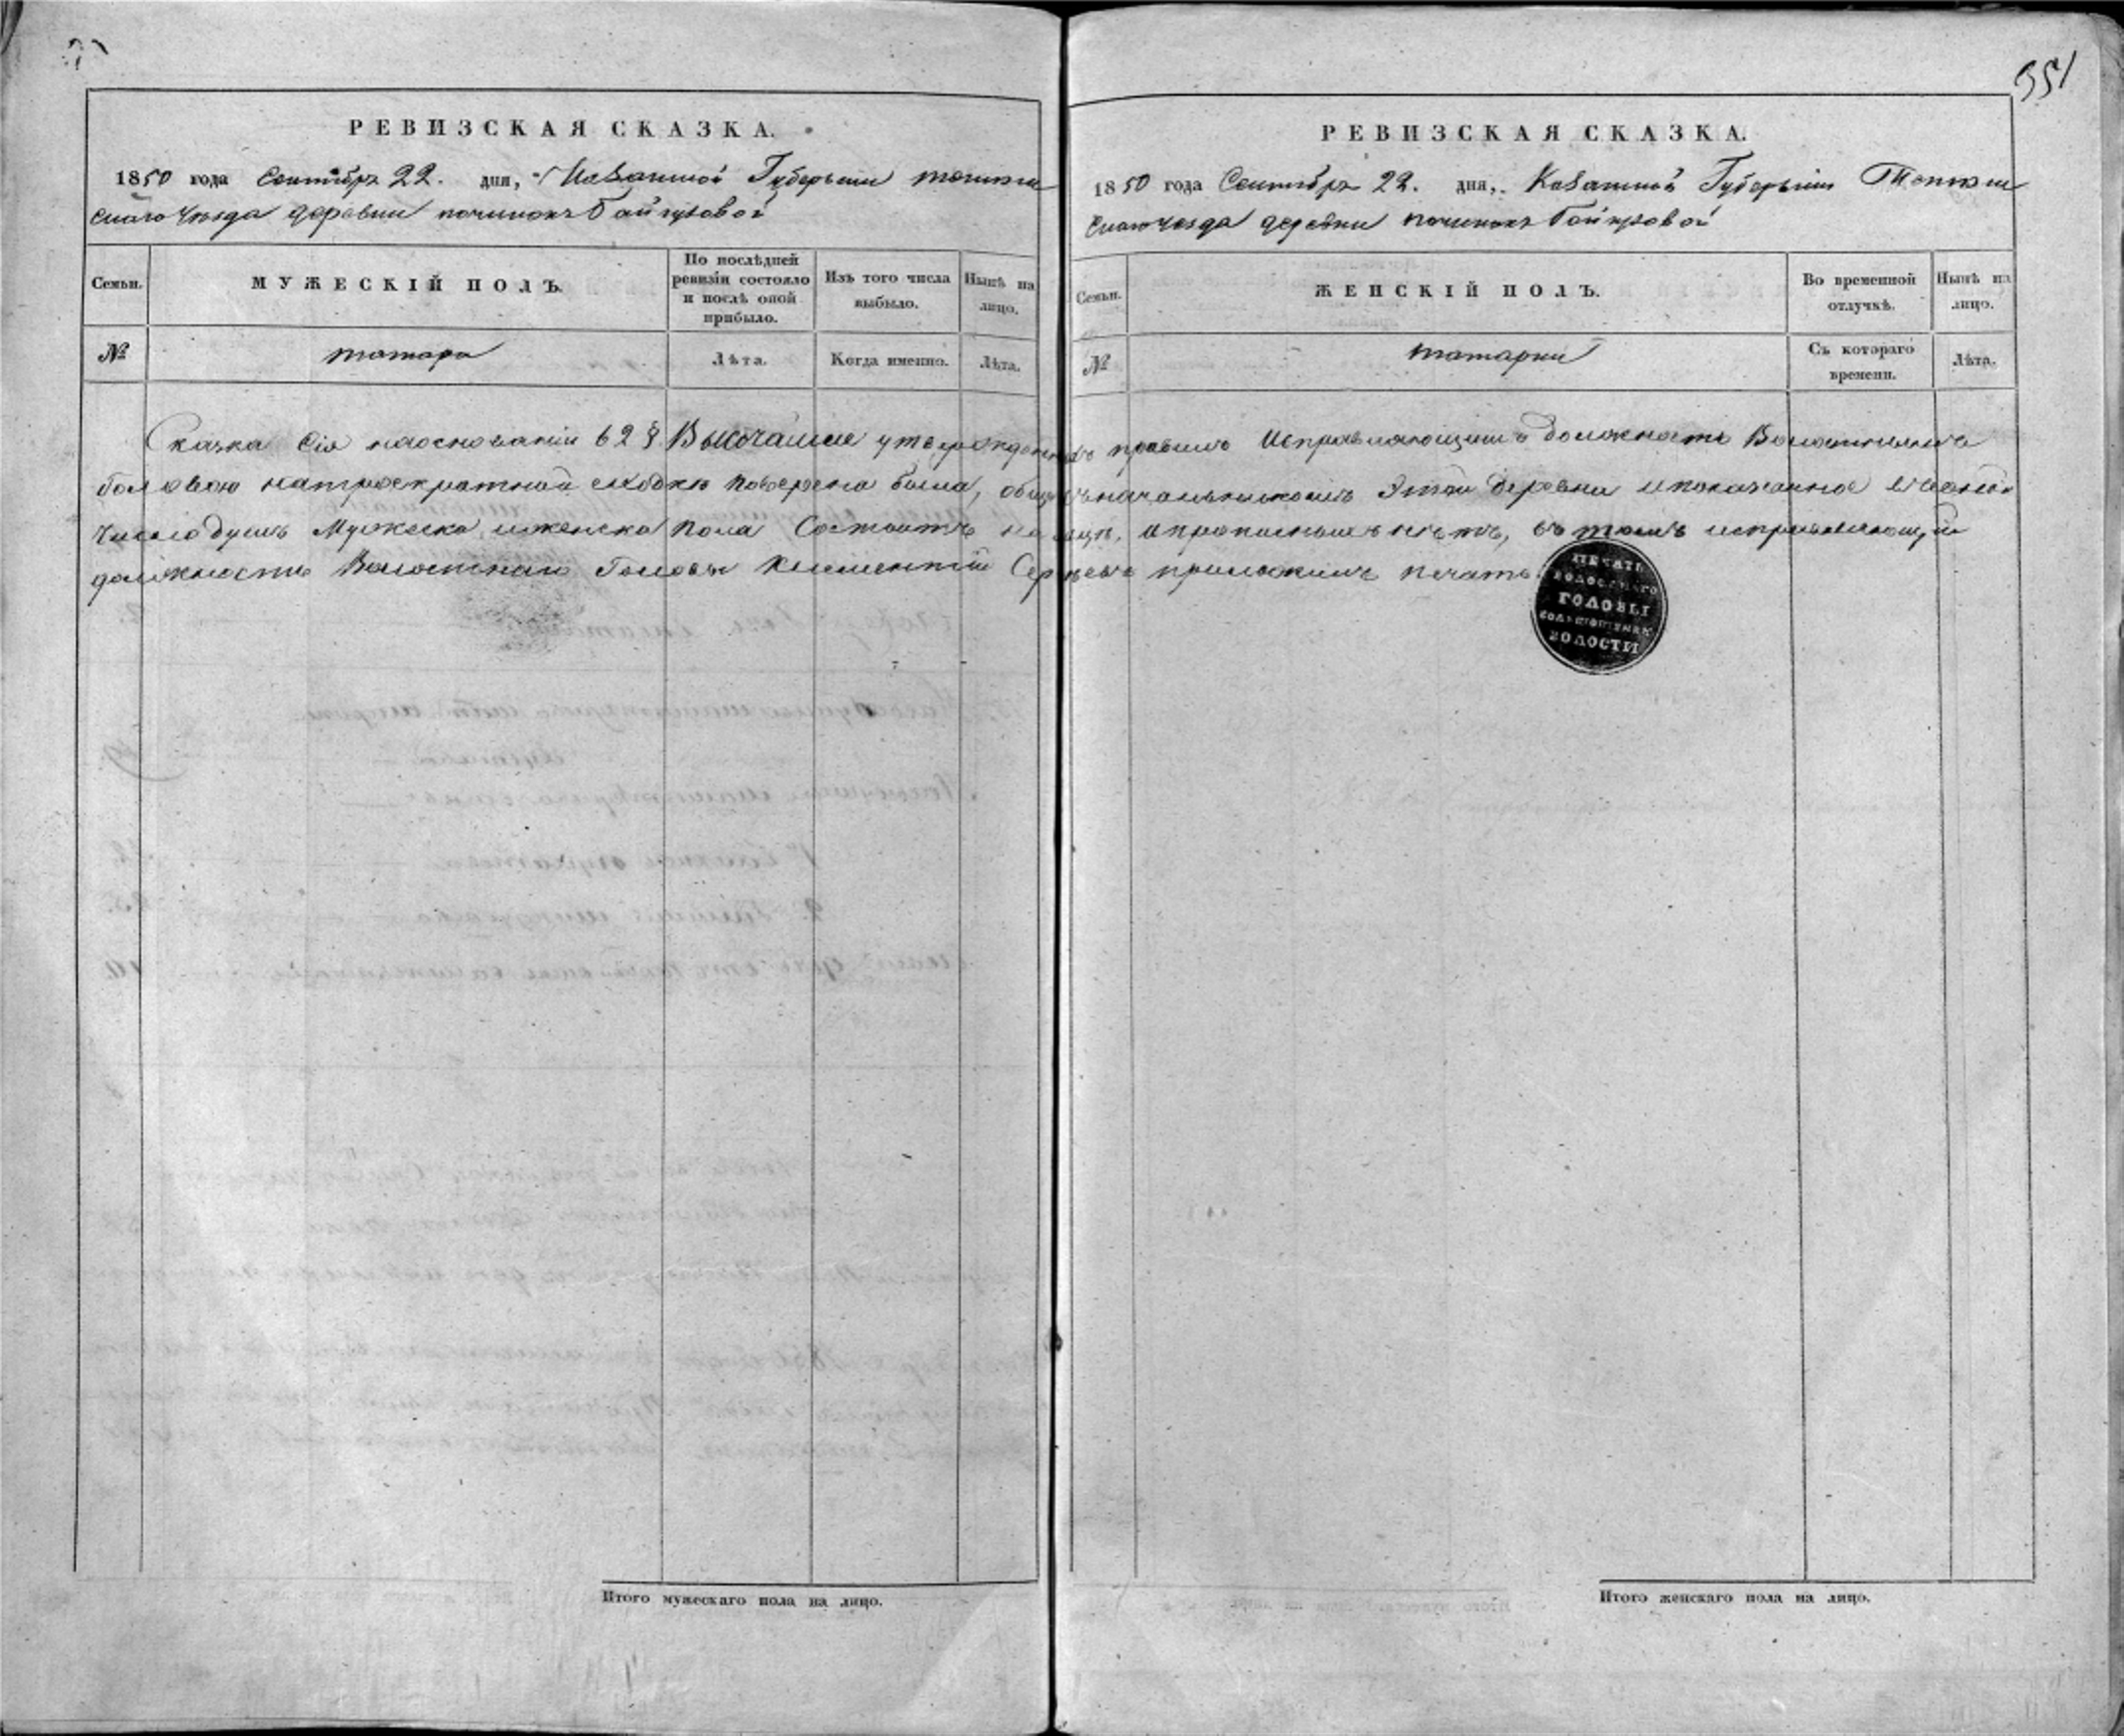 351
РЕВИЗСКАЯ СКАЗКА.
1850 года Сентября 22. дня, Казанской Губерніи тетюш
скаго уезда деревни починокъ Байгузовой
Семьи.
МУЖЕСКІЙ ПОЛЪ.
По послѣдней ревизіи состояло и послѣ оной прибыло.
Изъ того числа выбыло.
Нынѣ на лицо.
№
татара
Лѣта.
Когда именно.
Лѣта.
РЕВИЗСКАЯ СКАЗКА.
1850 года Сентября 22. дня, Казанской Губерніи Тетюш
скаго уезда деревни починокъ Байгузовой
Семьи.
ЖЕНСКІЙ ПОЛЪ.
Во временной отлучкѣ.
Нынѣ на лицо.
№
татарки
Съ котораго времени.
Лѣта.
Сказка Сія наоснованіи 62 § Высочайше утвержденныхъ правилъ Исправляющимъ должность Волостнымъ
головою натроекратной сходкѣ поверена была, общи съначальникомъ Этой деревни ипоказанное
Число душъ Мужеска иженска пола Состоитъ на лицо, апрописныхъ нетъ, въ томъ исправляющій
должность Волостнаго Головы Клементій Сергѣевъ приложилъ печать
ПЕЧАТЬ
ВОЛОСТНАГО
ГОЛОВЫ
ВОЛОСТИ
Итого мужескаго пола на лицо.
Итого женскаго пола на лицо.